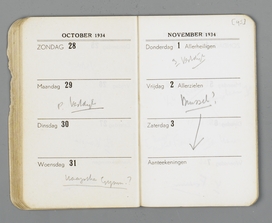 OCTOBER 1934
ZONDAG 28
Maandag 29
Dinsdag 30
Woensdag 31
?
NOVEMBER 1934
Donderdag 1 Allerheiligen
Vrijdag 2 Allerzielen
Brussel?
Zaterdag 3
Aanteekeningen